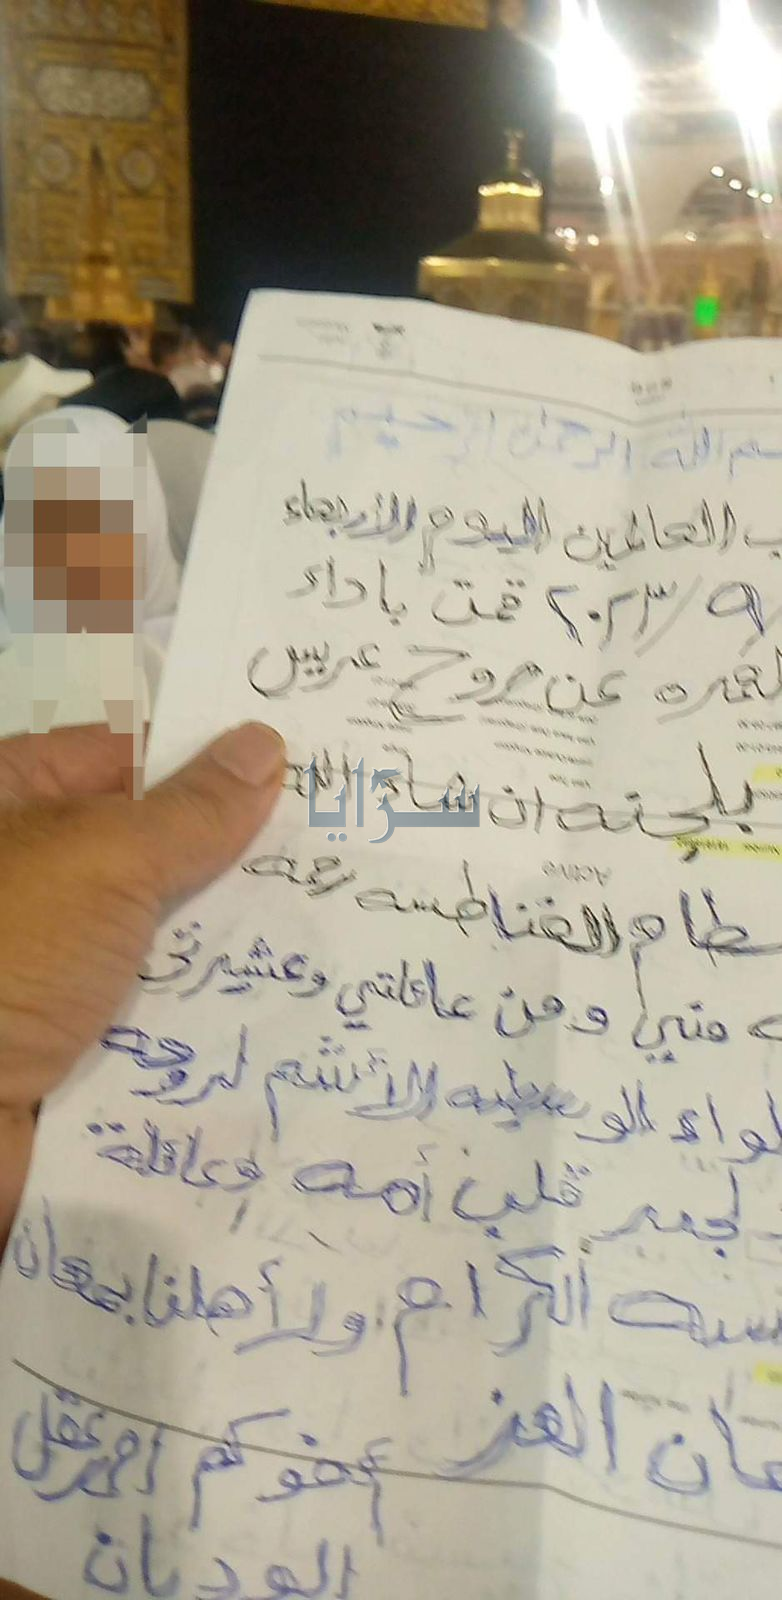 سم الله الرحمن الرحيم
ب العالمين اليوم الأربعاء
/٩/٢٠٢٣ قمت باداء
لعمره عن مروح عريس
بلجنه ان شاء الله
سرايا
Active
سطام القناطسه رحمه
ه مني ومن عائلتي وعشيرتي
لواء الوسطيه الأشم لروحه
لجبر قلب أمه وعائلة
سه الكرام ولأهلنا بمعان
عان العز
أخوكم احمد عقل
الوديان